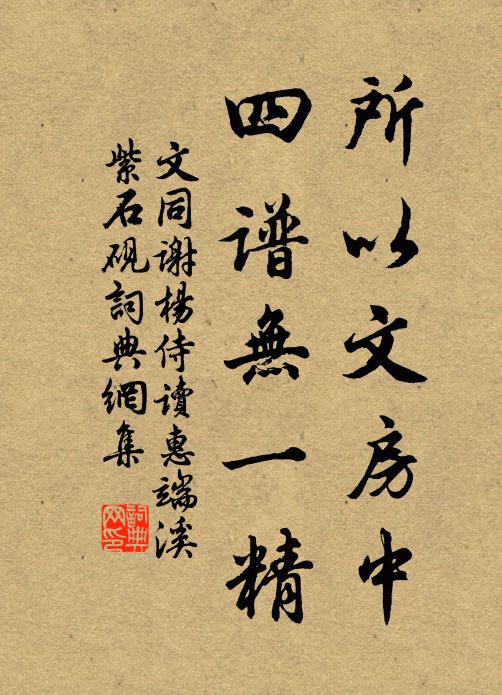 所以文房中
四谱無一精
文同謝楊侍讀惠端溪
紫石硯詞典網集
詞典网印